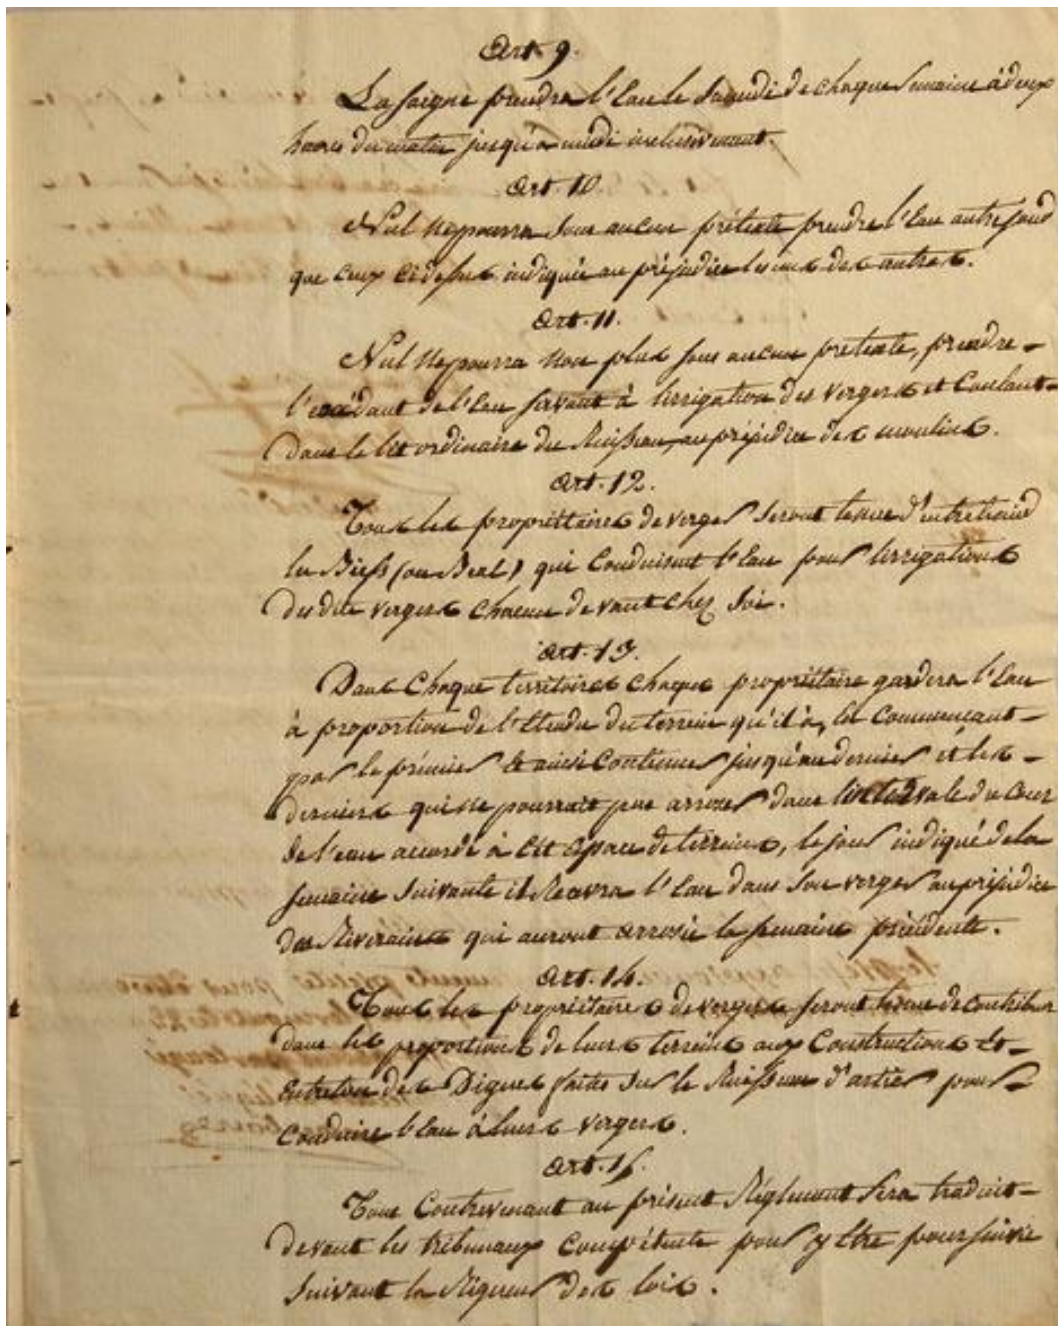 Art. 9.
La saigne prendra l'Eau le Samedi de chaque Semaine à deux
heures du matin jusqu'a midi inclusivement.
Art. 10
Nul ne pourra sous aucun prétexte prendre l'Eau autre
que ceux ci dessus indiqués au préjudice les uns des autres.
Art. 11.
Nul ne pourra non plus sous aucun prétexte, prendre
l'excédant de l'Eau servant à lirrigation des vergers et Coulant
dans le lit ordinaire du Ruisseau, au préjudice des moulins.
Art. 12.
Tous les propriétaires de verger seront tenus d'entretenir
les Biefs (ou Béal) qui Conduisent l'Eau pour lirrigations
des dits vergers chacun devant chez Soi.
Art. 13.
Dans Chaque territoires chaque propriétaire gardera l'Eau
à proportion de l'étendu du terrein qu'il à, en Commençant
par le prémier et ainsi Continuer jusqu'au dernier et les
derniers qui ne pourrait pas arroser dans lintervale du Cour
de l'eau accordé à cet espace de terreins, le jour indiqué de la
semaine suivante il Recevra l'Eau dans son verger au préjudice
des Riverains qui auront arrosé la semaine précédente.
Art. 14.
Tous les propriétaires de vergers seront tenus de contribuer
dans les proportions de leurs terreins aux Constructions et
Entretien des Digues faites sur le Ruisseau d'artier pour
Conduire l'Eau à leurs vergers.
Art. 15.
Tout Contrevenant au présent Réglement sera traduit
devant les tribunaux compétents pour y être poursuivie
suivant la Rigueur des lois.